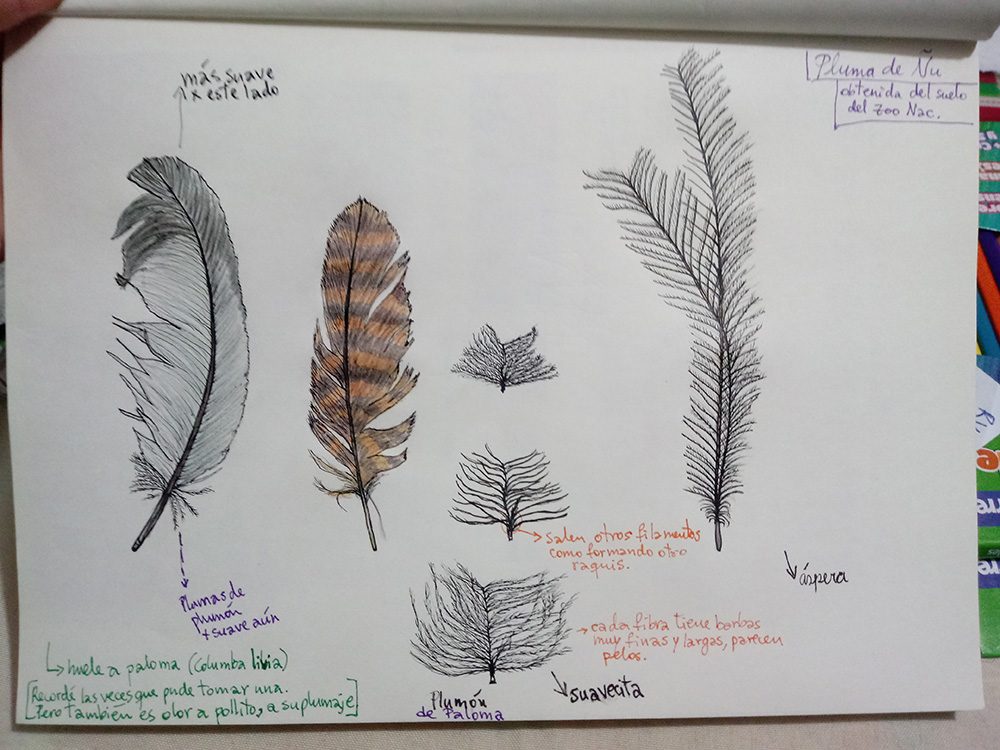 más suave
x este lado
Pluma de Ñu
obtenida del suelo
del Zoo Nac.
salen otros filamentos
como formando otro
raquis.
áspera
Plumas de
plumón
+ suave aún
cada fibra tiene barbas
muy finas y largas, parecen
pelos.
huele a paloma (Columba libia)
[Recordé las veces que pude tomar una.
Pero también es olor a pollito, a su plumaje]
Plumón
de Paloma
suavecita